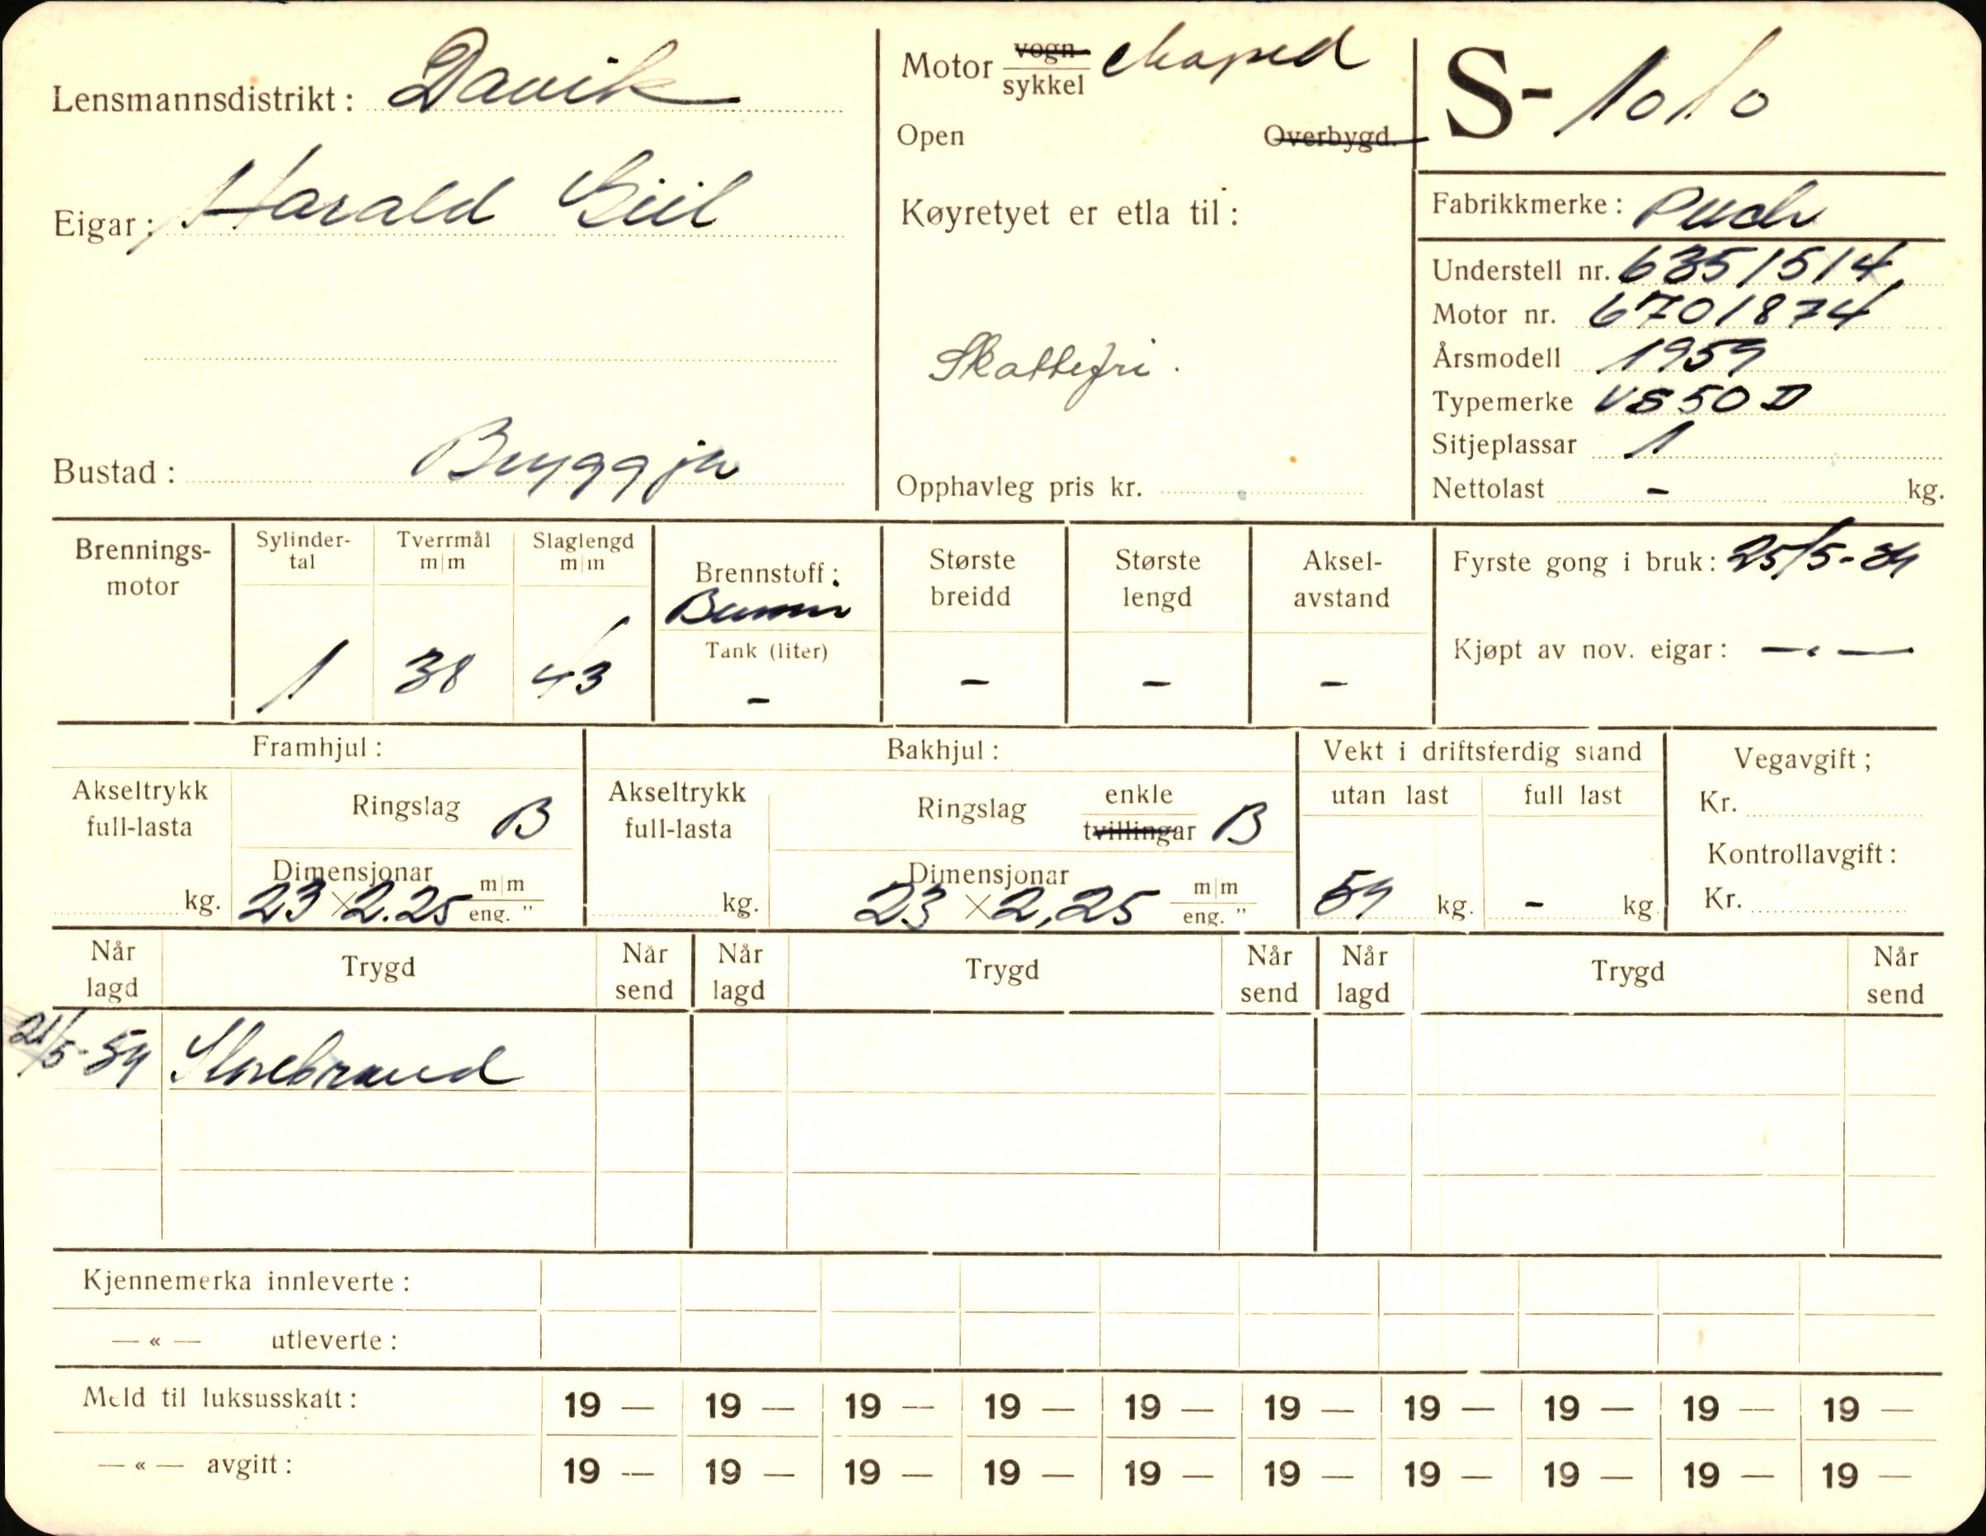 Lensmannsdistrikt: Davik
Motor vogn sykkel Moped
S- 1010
Open Overbygd.
Eigar: Harald
Køyretyet er etla til:
Fabrikkmerke: Puch
Understell nr. 6351514
Motor nr. 6701874
Skattefri.
Årsmodell 1959
Typemerke VS 50 D
Sitjeplassar 1
Bustad: Bryggja
Opphavleg pris kr.
Nettolast - kg.
Brennings-
motor
Sylinder-
tal
1
Tverrmål
m/m
38
Slaglengd
m/m
43
Brennstoff:
Bensin
Tank (liter)
-
Største
breidd
-
Største
lengd
-
Aksel-
avstand
-
Fyrste gong i bruk: 25/5-59
Kjøpt av nov. eigar: — " —
Framhjul:
Akseltrykk
full-lasta
kg.
Ringslag B
Dimensjonar
23 x 2.25 m/m eng. "
Bakhjul:
Akseltrykk
full-lasta
kg.
Ringslag enkle tvillingar B
Dimensjonar
23 x 2,25 m/m eng. "
Vekt i driftsferdig stand
utan last full last
59 kg. - kg
Vegavgift;
Kr.
Kontrollavgift:
Kr.
Når lagd Trygd Når send Når lagd Trygd Når send Når lagd Trygd Når send
21/5-59 Storebrand
Kjennemerka innleverte:
— « — utleverte:
Meld til luksusskatt: 19 — 19 — 19 — 19 — 19 — 19 — 19 — 19 — 19 — 19 —
— « — avgift: 19 — 19 — 19 — 19 — 19 — 19 — 19 — 19 — 19 — 19 —